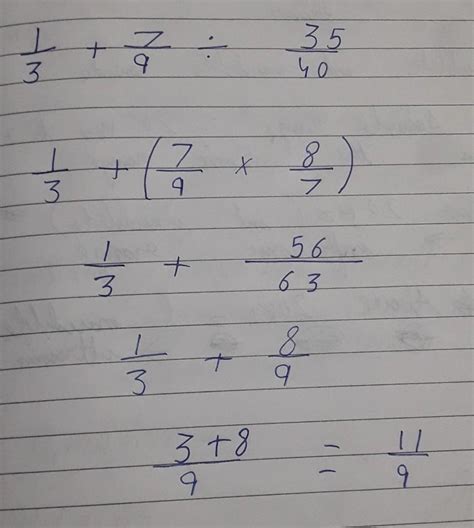 1/3 + 7/9 ÷ 35/40
1/3 + (7/9 × 8/7)
1/3 + 56/63
1/3 + 8/9
3+8/9 = 11/9